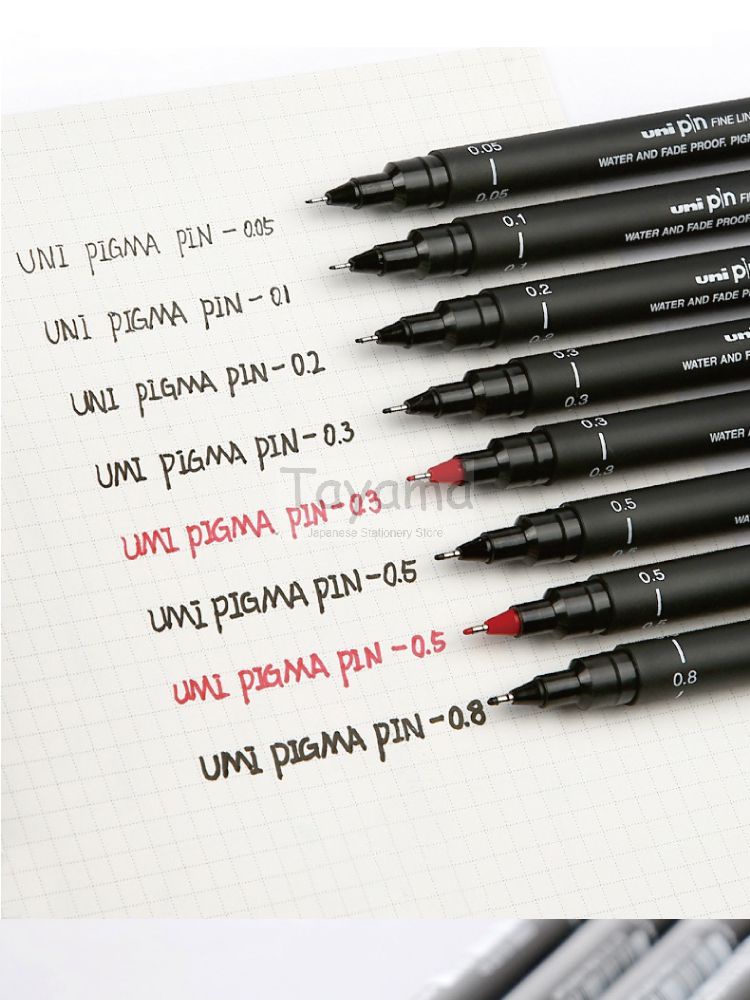 0.05
uni pin FINE LIN
WATER AND FADE PROOF. PIG
0.05
0.1
uni pin FI
WATER AND FADE PROOF
0.1
UNI PIGMA PIN - 0.05
0.2
uni pin
WATER AND FADE P
0.2
UNI PIGMA PIN - 0.1
0.3
uni
WATER AND F
0.3
UNI PIGMA PIN - 0.2
0.3
WATER A
0.3
UMI PIGMA PIN - 0.3
Tayama
Japanese Stationery Store
UMI PIGMA PIN - 0.3
0.5
WA
0.5
UMI PIGMA PIN - 0.5
0.5
0.5
UMI PIGMA PIN - 0.5
0.8
UMI PIGMA PIN - 0.8